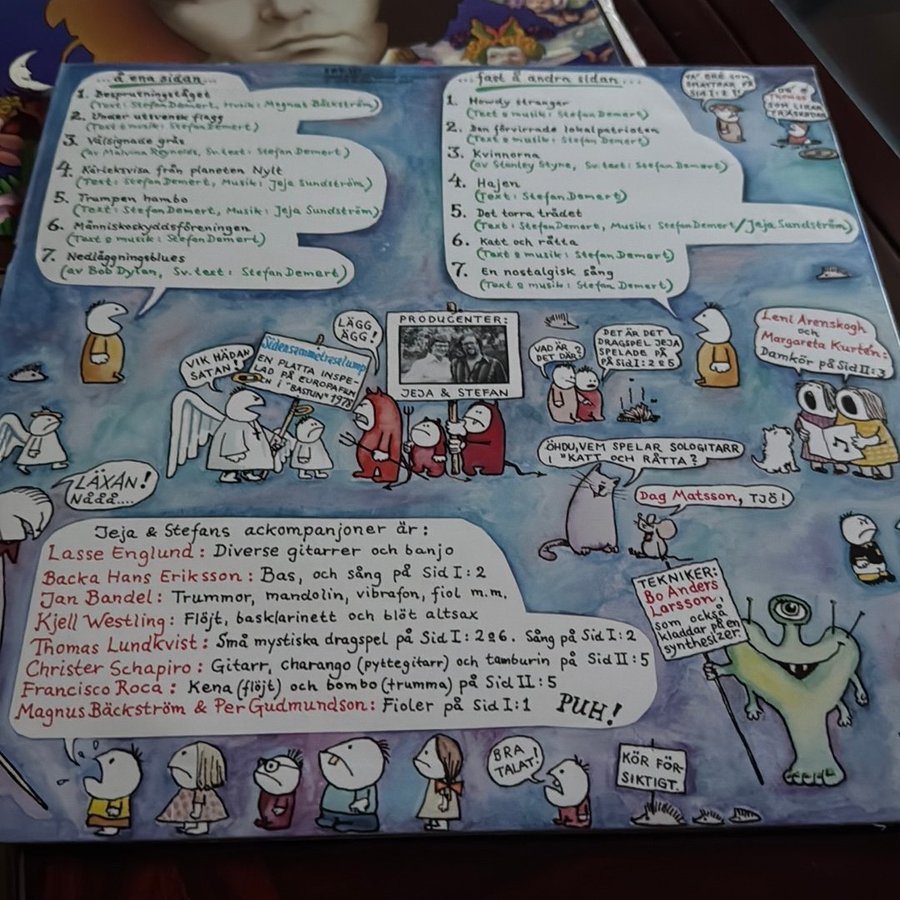 ...å ena sidan...
1. Besprutningståget
(Text: Stefan Demert, Musik: Magnus Bäckström)
2. Under utlvensk flagg
(Text & musik: Stefan Demert)
3. Välsignade gräs
(av Malvina Reynolds, Sv. text: Stefan Demert)
4. Kärleksvisa från planeten Nylt
(Text: Stefan Demert, Musik: Jeja Sundström)
5. Trumpen hambo
(Text: Stefan Demert, Musik: Jeja Sundström)
6. Människoskyddsföreningen
(Text & musik: Stefan Demert)
7. Nedläggningsblues
(av Bob Dylan, Sv. text: Stefan Demert)
...fast å andra sidan...
1. Howdy stranger
(Text & musik: Stefan Demert)
2. Den förvirrade lokalpatrioten
(Text & musik: Stefan Demert)
3. Kvinnorna
(av Stanley Styne, Sv. text: Stefan Demert)
4. Hajen
(Text: Stefan Demert)
5. Det torra trädet
(Text: Stefan Demert, Musik: Stefan Demert/Jeja Sundström)
6. Katt och råtta
(Text & musik: Stefan Demert)
7. En nostalgisk sång
(Text & musik: Stefan Demert)
SOM
SMATTRAR PÅ
SID I:2?
THOMAS
SOM LIRAR
TRÄSKEDAR
VIK HÄDAN
SATAN!
Sidensammetrasalump
EN PLATTA INSPE-
LAD PÅ EUROPAFILM
"BASTUN" 1978
LÄGG
ÄGG!
PRODUCENTER:
JEJA & STEFAN
VAD ÄR
DET DÄR?
DET ÄR DET
DRAGSPEL JEJA
SPELADE PÅ
PÅ SID I: 2 & 6
Leni Arenskogh
och
Margareta Kurtén:
Damkör på Sid II:3
ÖHDU, VEM SPELAR SOLOGITARR
I "KATT OCH RÅTTA?
Dag Matsson, TJÖ!
LÄXAN!
NÅÅÅ....
Jeja & Stefans ackompanjoner är:
Lasse Englund: Diverse gitarrer och banjo
Backa Hans Eriksson: Bas, och sång på Sid I:2
Jan Bandel: Trummor, mandolin, vibrafon, fiol m.m.
Kjell Westling: Flöjt, basklarinett och blöt altsax
Thomas Lundkvist: Små mystiska dragspel på Sid I: 2 & 6. Sång på Sid I:2
Christer Schapiro: Gitarr, charango (pyttegitarr) och tamburin på Sid II:5
Francisco Roca: Kena (flöjt) och bombo (trumma) på Sid II:5
Magnus Bäckström & Per Gudmundson: Fioler på Sid I:1
PUH!
TEKNIKER:
Bo Anders
Larsson,
som också
kladdar på en
synthesizer.
BRA
TALAT!
KÖR FÖR-
SIKTIGT.